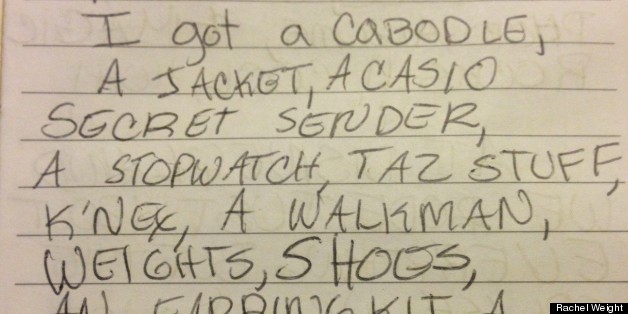 I got a CABODLE,
A JACKET, A CASIO
SECRET SENDER,
A STOPWATCH, TAZ STUFF,
K'NEX, A WALKMAN,
WEIGHTS, SHOES,
AN EARRING KIT, A
Rachel Weight